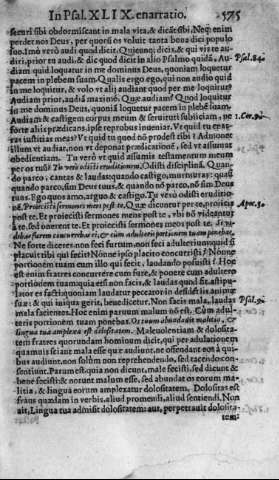 In Psal. XLIX. enarratio. 575
securi sibi obdormiscant in mala vita, & dicāt sibi, Neq; enim
perdet nos Deus, per quos os vnice tanta bona dici populo
suo. Imò verò audi quod dicit. Quicunq; dicis, & qui vis te au-
diri, prior tu audi, & dic quod dicit in alio Psalmo quidā, Au- Psal. 84.
diam quid loquatur in me dominus Deus, quoniam loquetur
pacem in plebem suam. Qualis ergo ego, qui non audio quid
in me loquitur, & volo vt alij audiant quod per me loquitur?
Audiam prior, audiā maximè. Quæ audiam? Quod loquitur
in me dominus Deus, quoniā loquetur pacem in plebē suam.
Audiam & castigem corpus meum & seruituti subijciam, ne 1. Cor. 9.
forte alijs prædicans, ipse reprobus inueniar. Vt quid tu enar-
ras iustitias meas? Vt quid tu quod nō prodest tibi? Admonet
illum vt audiat, non vt deponat prædicationē, sed vt assumat
obedientiam. Tu verò vt quid assumis testamentum meum
per os tuū? Tu verò odisti eruditionem. Odisti disciplinā. Quan-
do parco, cantas & laudas: quando castigo, murmuras: quasi
quando parco, sim Deus tuus, & quando nō parco, nō sim Deus
tuus. Ego quos amo, arguo & castigo. Tu verò odisti eruditio- Apoc. 3.
nē. Proiecisti sermones meos post te. Quæ dicuntur per te, proiicis
post te. Et proiecisti sermones meos post te, vbi nō videantur
à te, sed onerent te. Et proiecisti sermones meos post te. Si vi-
debas furem concurrebas ei, & cum adulteris portionem tuam ponebas.
Ne forte diceres, non feci furtum, non feci adulterium: quid si
placuit tibi qui fecit? Nonne ipso placito concurristi? Nonne
portionem tuam cum illo qui fecit, laudando posuisti? Hoc
est enim fratres concurrere cum fure, & ponere cum adultero
portionem tuam: quia etsi non facis, & laudas quod fit, astipu-
lator es facti: quoniam laudatur peccator in desideriis animæ
suæ: & qui iniqua gerit, benedicetur. Non facis mala, laudas Psal. 9.
mala facientes. Hoc enim paruum malum nō est. Cum adul-
teris portionem tuam ponebas. Os tuum abundauit malitia, &
lingua tua amplexa est dolositatem. Maleuolentiam & dolosita-
tem fratres quorundam hominum dicit, qui per adulationem
quamuis sciant mala esse quæ audiunt, ne offendant eos à qui-
bus audiunt, non solùm non reprehendendo, sed tacendo con-
sentiunt. Parum est quia non dicunt, male fecisti, sed dicunt &
bene fecisti: & norunt malum esse, sed abundat os eorum ma-
litia, & lingua eorum amplexatur dolositatem. Dolositas est
fraus quædam in verbis, aliud promendi, aliud sentiendi. Non
ait, Lingua tua admisit dolositatem aut, perpetrauit dolosita-
tem: